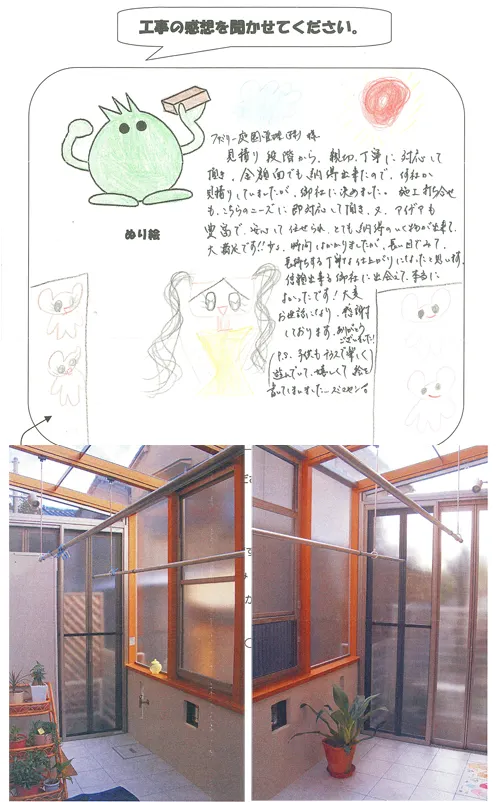 工事の感想を聞かせてください。
ファミリー庭園直樹(株) 様
見積り段階から、親切、丁寧に対応して
頂き、金額面でも納得出来たので、何社か
見積りしていましたが、御社に決めました。施工打ち合せ
も、こちらのニーズに即対応して頂き、又、アイデアも
豊富で、安心して任せられ、とても納得のいく物が出来て、
大満足です!!少々、時間はかかりましたが、長い目でみて、
長持ちする丁寧な仕上がりになったと思います。
信頼出来る御社に出会えて、本当に
よかったです！大変
お世話になり、感謝
しております。ありがとう
ございました!
(P.S. 子供もテラスで楽しく
遊んでいて、嬉しくて絵を
書いてしまいました…スミマセン)
ぬり絵